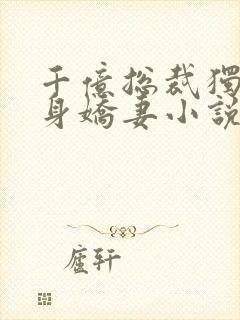 千億總裁獨
身嬌妻小說
廬軒